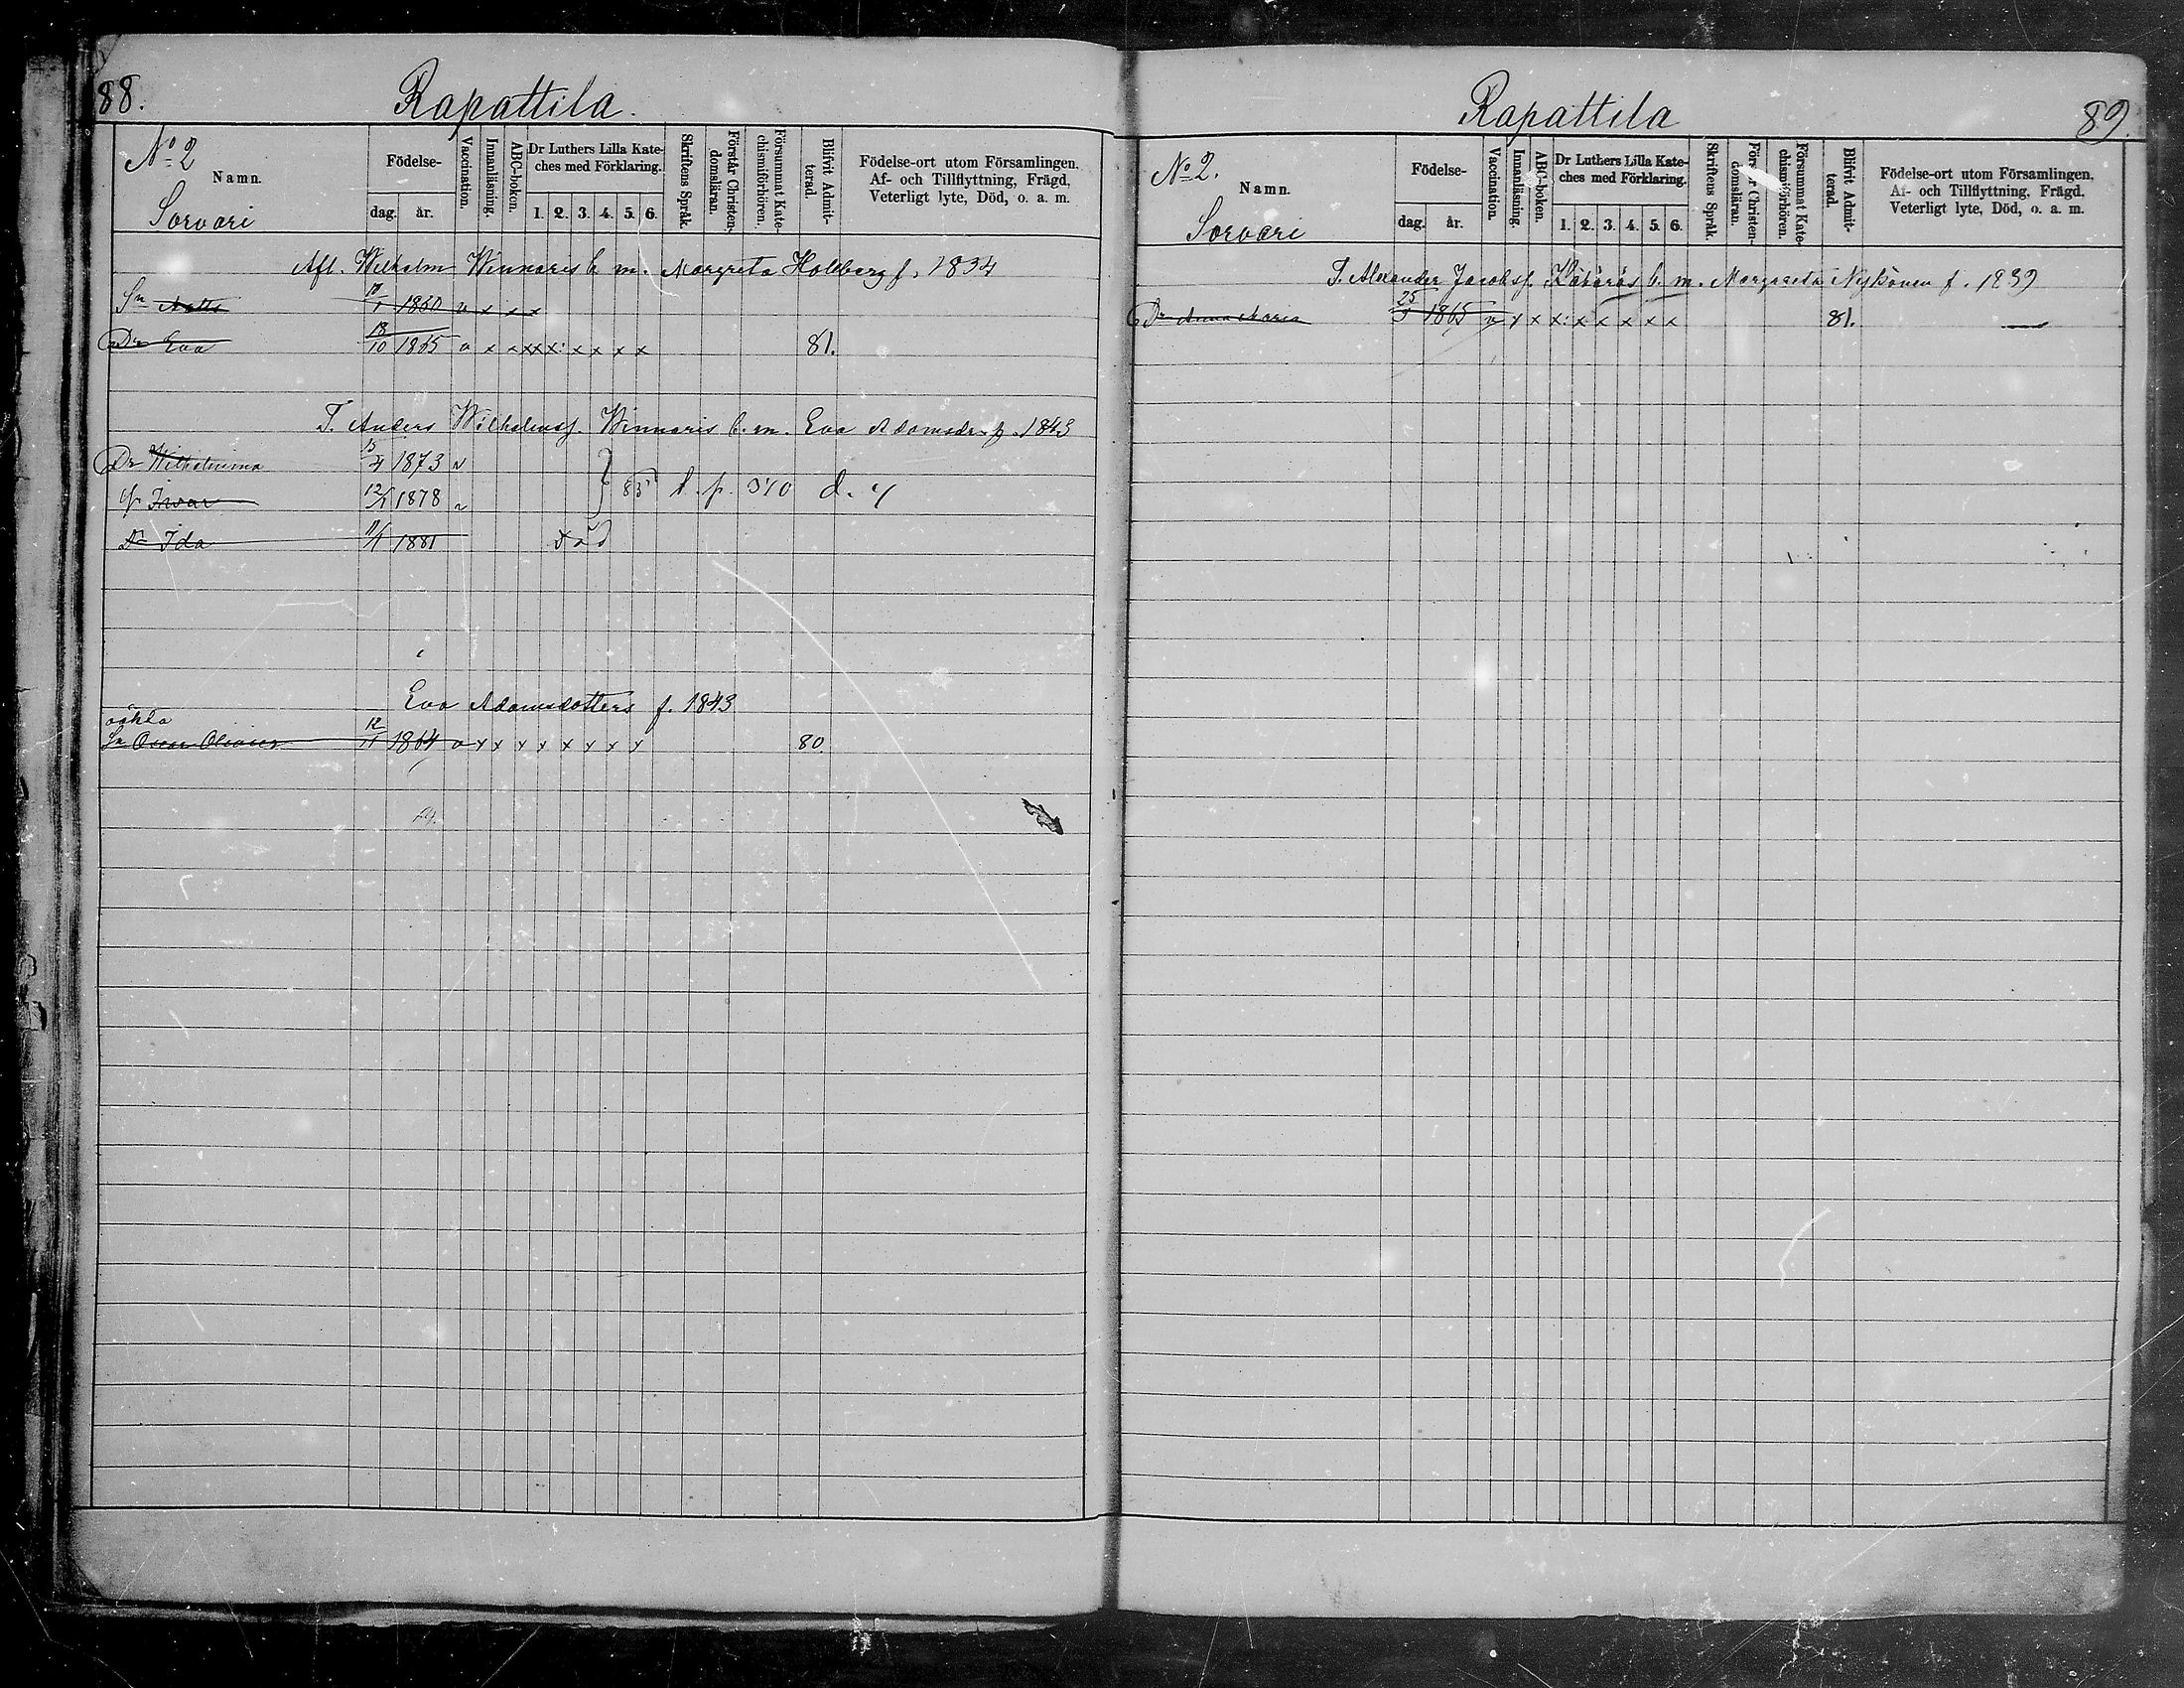 88.
Rapattila.
No 2
Namn.
Sorvari
Födelse-
dag.
år.
Vaccination.
Innanläsning.
ABC-boken.
Dr Luthers Lilla Kate-
ches med Förklaring.
1. 2. 3. 4. 5. 6.
Skriftens Språk.
Förstår Christen-
domsläran.
Försummat Kate-
chismiförhören.
Blifvit Admit-
terad.
Födelse-ort utom Församlingen.
Af- och Tillflyttning, Frägd,
Veterligt lyte, Död, o. a. m.
Afl. Wilhelm Winnaris b. m. Margreta Holberg f. 1834
Sn Matts 1860 v x x x
Dr Eva 18/10 1865 v x x x x x: x x x x 81.
T. Anders Wilhelmsf. Winnaris b. m. Eva Adamsdr f. 1843
Dr Wilhelmina 1873 v
Ivar 1878 v } 85 l. p. 370
Dr Ida 1881 Död
Eva Adamsdotters f. 1843
oäkta
Sn Oscar 12/11 1864 v x x x x x x x x 80.
Rapattila
89.
No 2.
Namn.
Sorvari
Födelse-
dag.
år.
Vaccination.
Innanläsning.
ABC-boken.
Dr Luthers Lilla Kate-
ches med Förklaring.
1. 2. 3. 4. 5. 6.
Skriftens Språk.
Förstår Christen-
domsläran.
Försummat Kate-
chismiförhören.
Blifvit Admit-
terad.
Födelse-ort utom Församlingen,
Af- och Tillflyttning, Frägd,
Veterligt lyte, Död, o. a. m.
T. Alexander Jacobsf. b. m. Margareta Nykänen f. 1839
Dr Anna Maria 1865 v x x x: x x x x x 81.